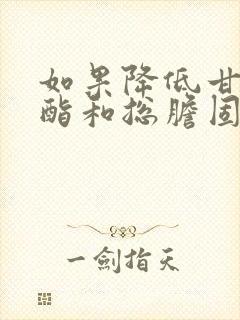 如果降低甘
酯和总胆固
一剑指天